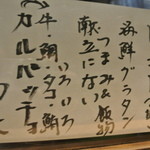 海鮮グラタン
つまみ&飯物
献立にない
いろいろ
牛・鯛・タコ・鮪
カルパッチョ